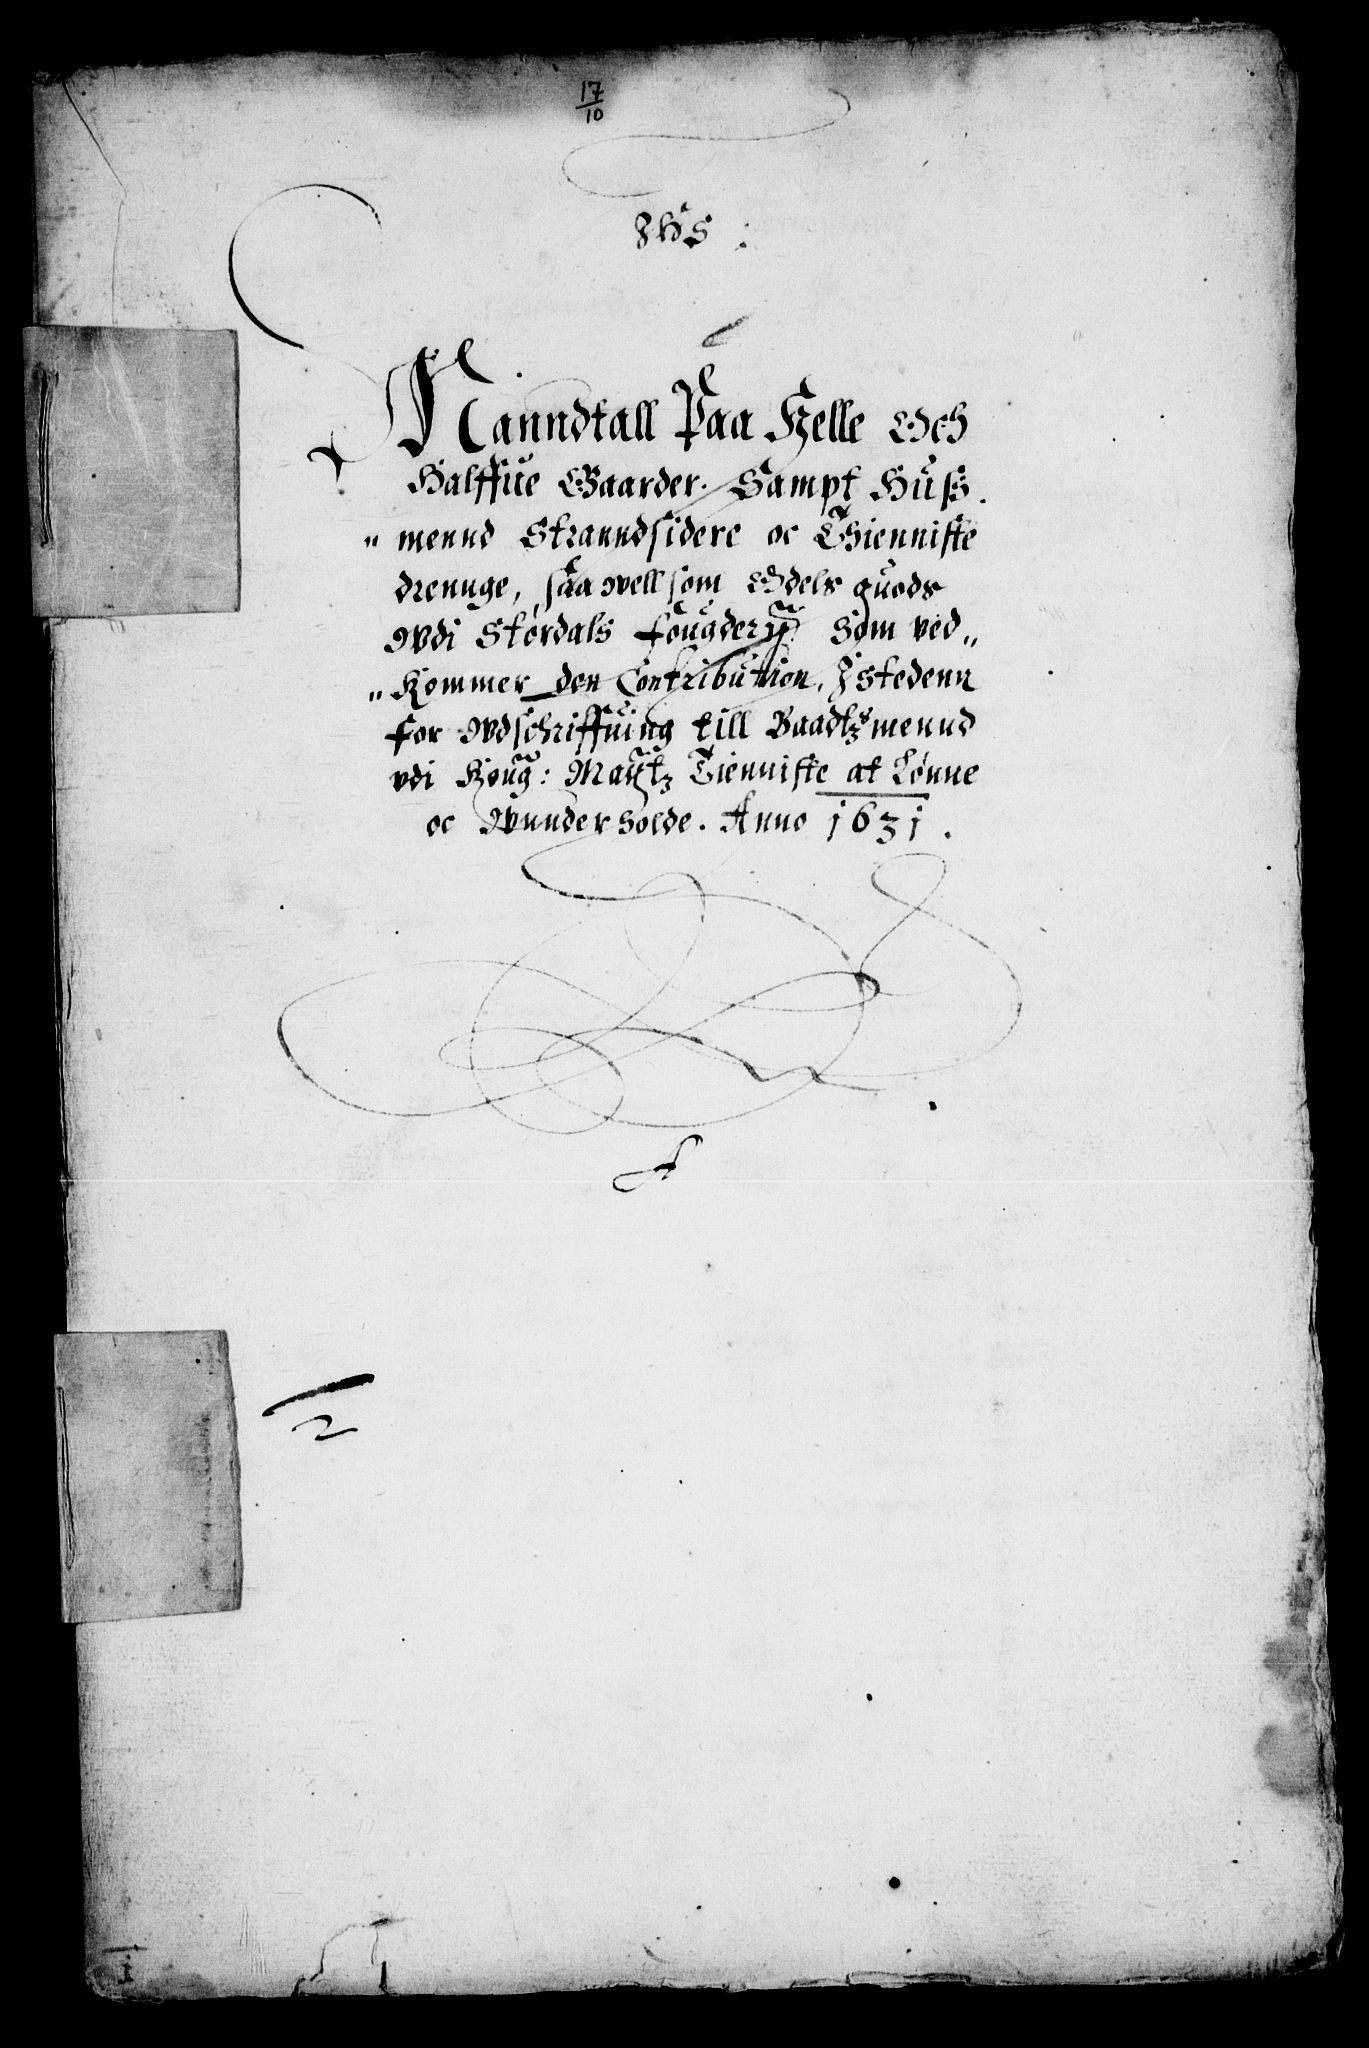 17
10
JHS :
Manndtall Paa Helle Och
Halffue Gaarder. Sampt Huss
„ mennd Stranndsidere oc Thienniste
drennge, saa well som Odels guods
Wdi Størdals fougderÿ Som ved„
„ Kommer den Contribution, J Stedenn
for Wdschriffuing till Baadtzmennd
vdi Kong: Maÿtz Tienniste at Lønne
oc Wnnderholde. Anno 1631.
A
2
1